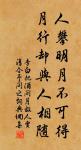 人攀明月不可得
月行却與人相隨
李白把酒問月故人賈
淳令予問之詞典網